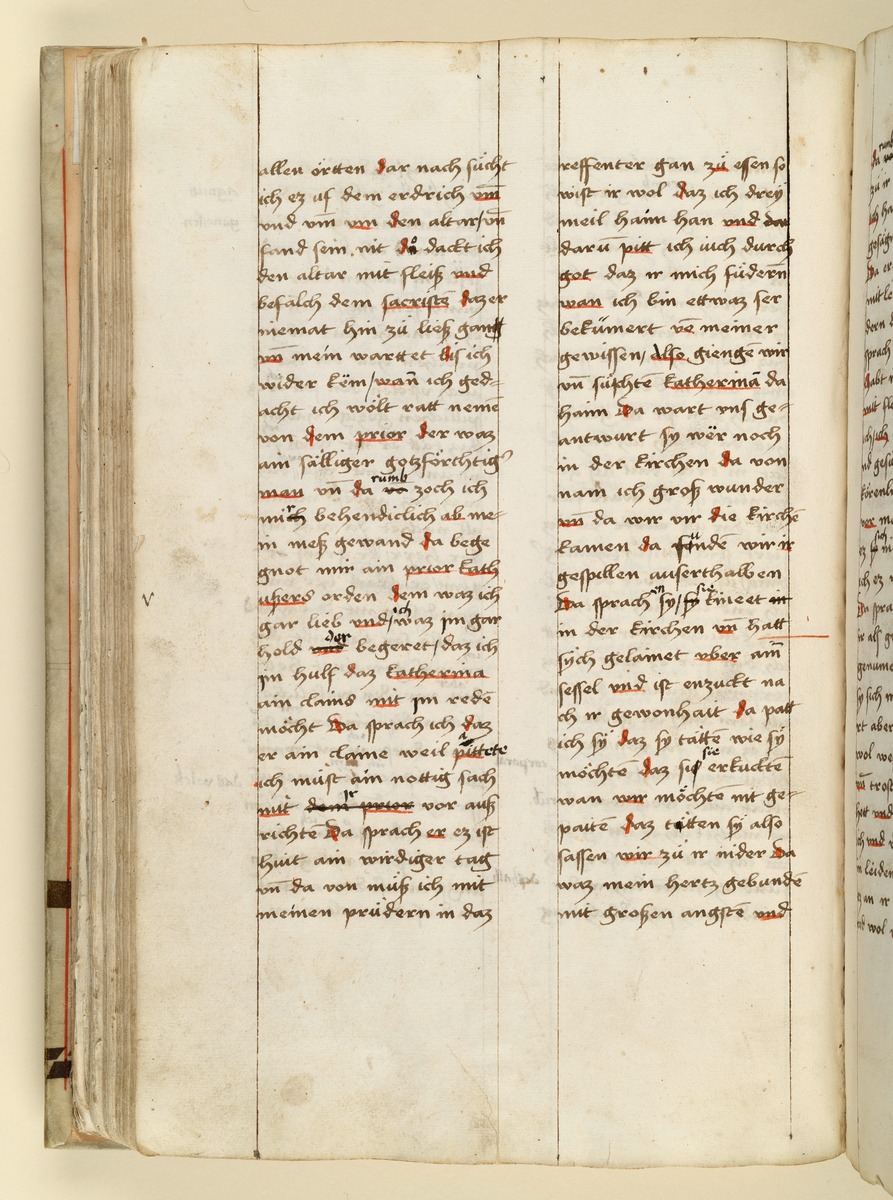 allen örtten dar nach sücht
ich ez uf dem erdrich vm̄
vnd vm̄ vm den altar / vn̄
fand sein nit do dackt ich
den altar mit fleiß vnd
befalch dem sacristē daz er
niemat hin zü ließ gan
vn̄ mein warttet bis ich
wider këm / wan̄ ich ged-
acht ich wölt ratt nemē
von dem prior der waz
ain sälliger gotzförchtig
man vn̄ da rumb zoch ich
mich behendiclich ab me-
in meß gewand da bege
gnot mir ain prior kath
users orden dem waz ich
gar lieb vnd / ich waz im gar
hold der begeret / daz ich
im hulf daz katherina
ain clains mit im redē
möcht Da sprach ich daz
er ain claine weil pittete
ich müst ain nottig sach
mit dem prior ir vor auß
richtē Da sprach er ez ist
huit ain wirdiger tag
vn̄ da von müß ich mit
meinen prüdern in daz
reffenter gan zü essen so
wist ir wol daz ich drey
meil haim han vnd
darū pitt ich üich durch
got daz ir mich füdern
wan ich bin ettwaz ser
bekümert vō meiner
gewissen / also giengē wir
vn̄ süchtē katherinā da
haim Da wart vns ge-
antwurt sy wër noch
in der kirchen da von
nam ich groß wunder
vn̄ da wir vir die kirchē
kamen da fundē wir ir
gespillen auserthalben
Da sprachen sy / sy kineet
in der kirchen vn̄ hatt
sÿch gelainet vber ain̄
sessel vnd ist enzuckt na
ch ir gewonhait da patt
ich sÿ daz sy tättē wie sÿ
möchtē daz sie erkucktē
wan wir möchtē nit ge-
paitē daz tätten sÿ also
sassen wir zü ir nider Da
waz mein hertz gebundē
mit großen angstē vnd